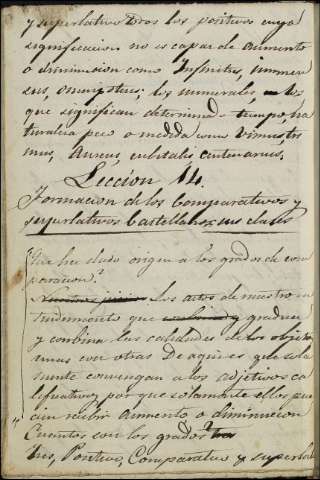 y superlativo Dros los positivos cuya
significacion no es capaz de Aumento
o diminucion como Infinitus, inmen
sus, omnipotens; los numerales, los
que significan determinado tiempo, na
turaleza peso o medida como
Aureus, cubitalis, centenarius.
Leccion 14.
Formacion de los Comparativos y
superlativos Castellanos, sus clases
Que ha dado origen a los grados de com
paracion?
los actos de nuestro en
tendimiento que y gradua
y conbina las calidades de los objetos
unas con otras De aqui es que sola
mente convengan a los adjetivos ca
lificativos, por que solamente ellos pue
den recibir Aumento o diminucion
Cuantos son los grados?
Tres, Positivo, Comparativo y superla